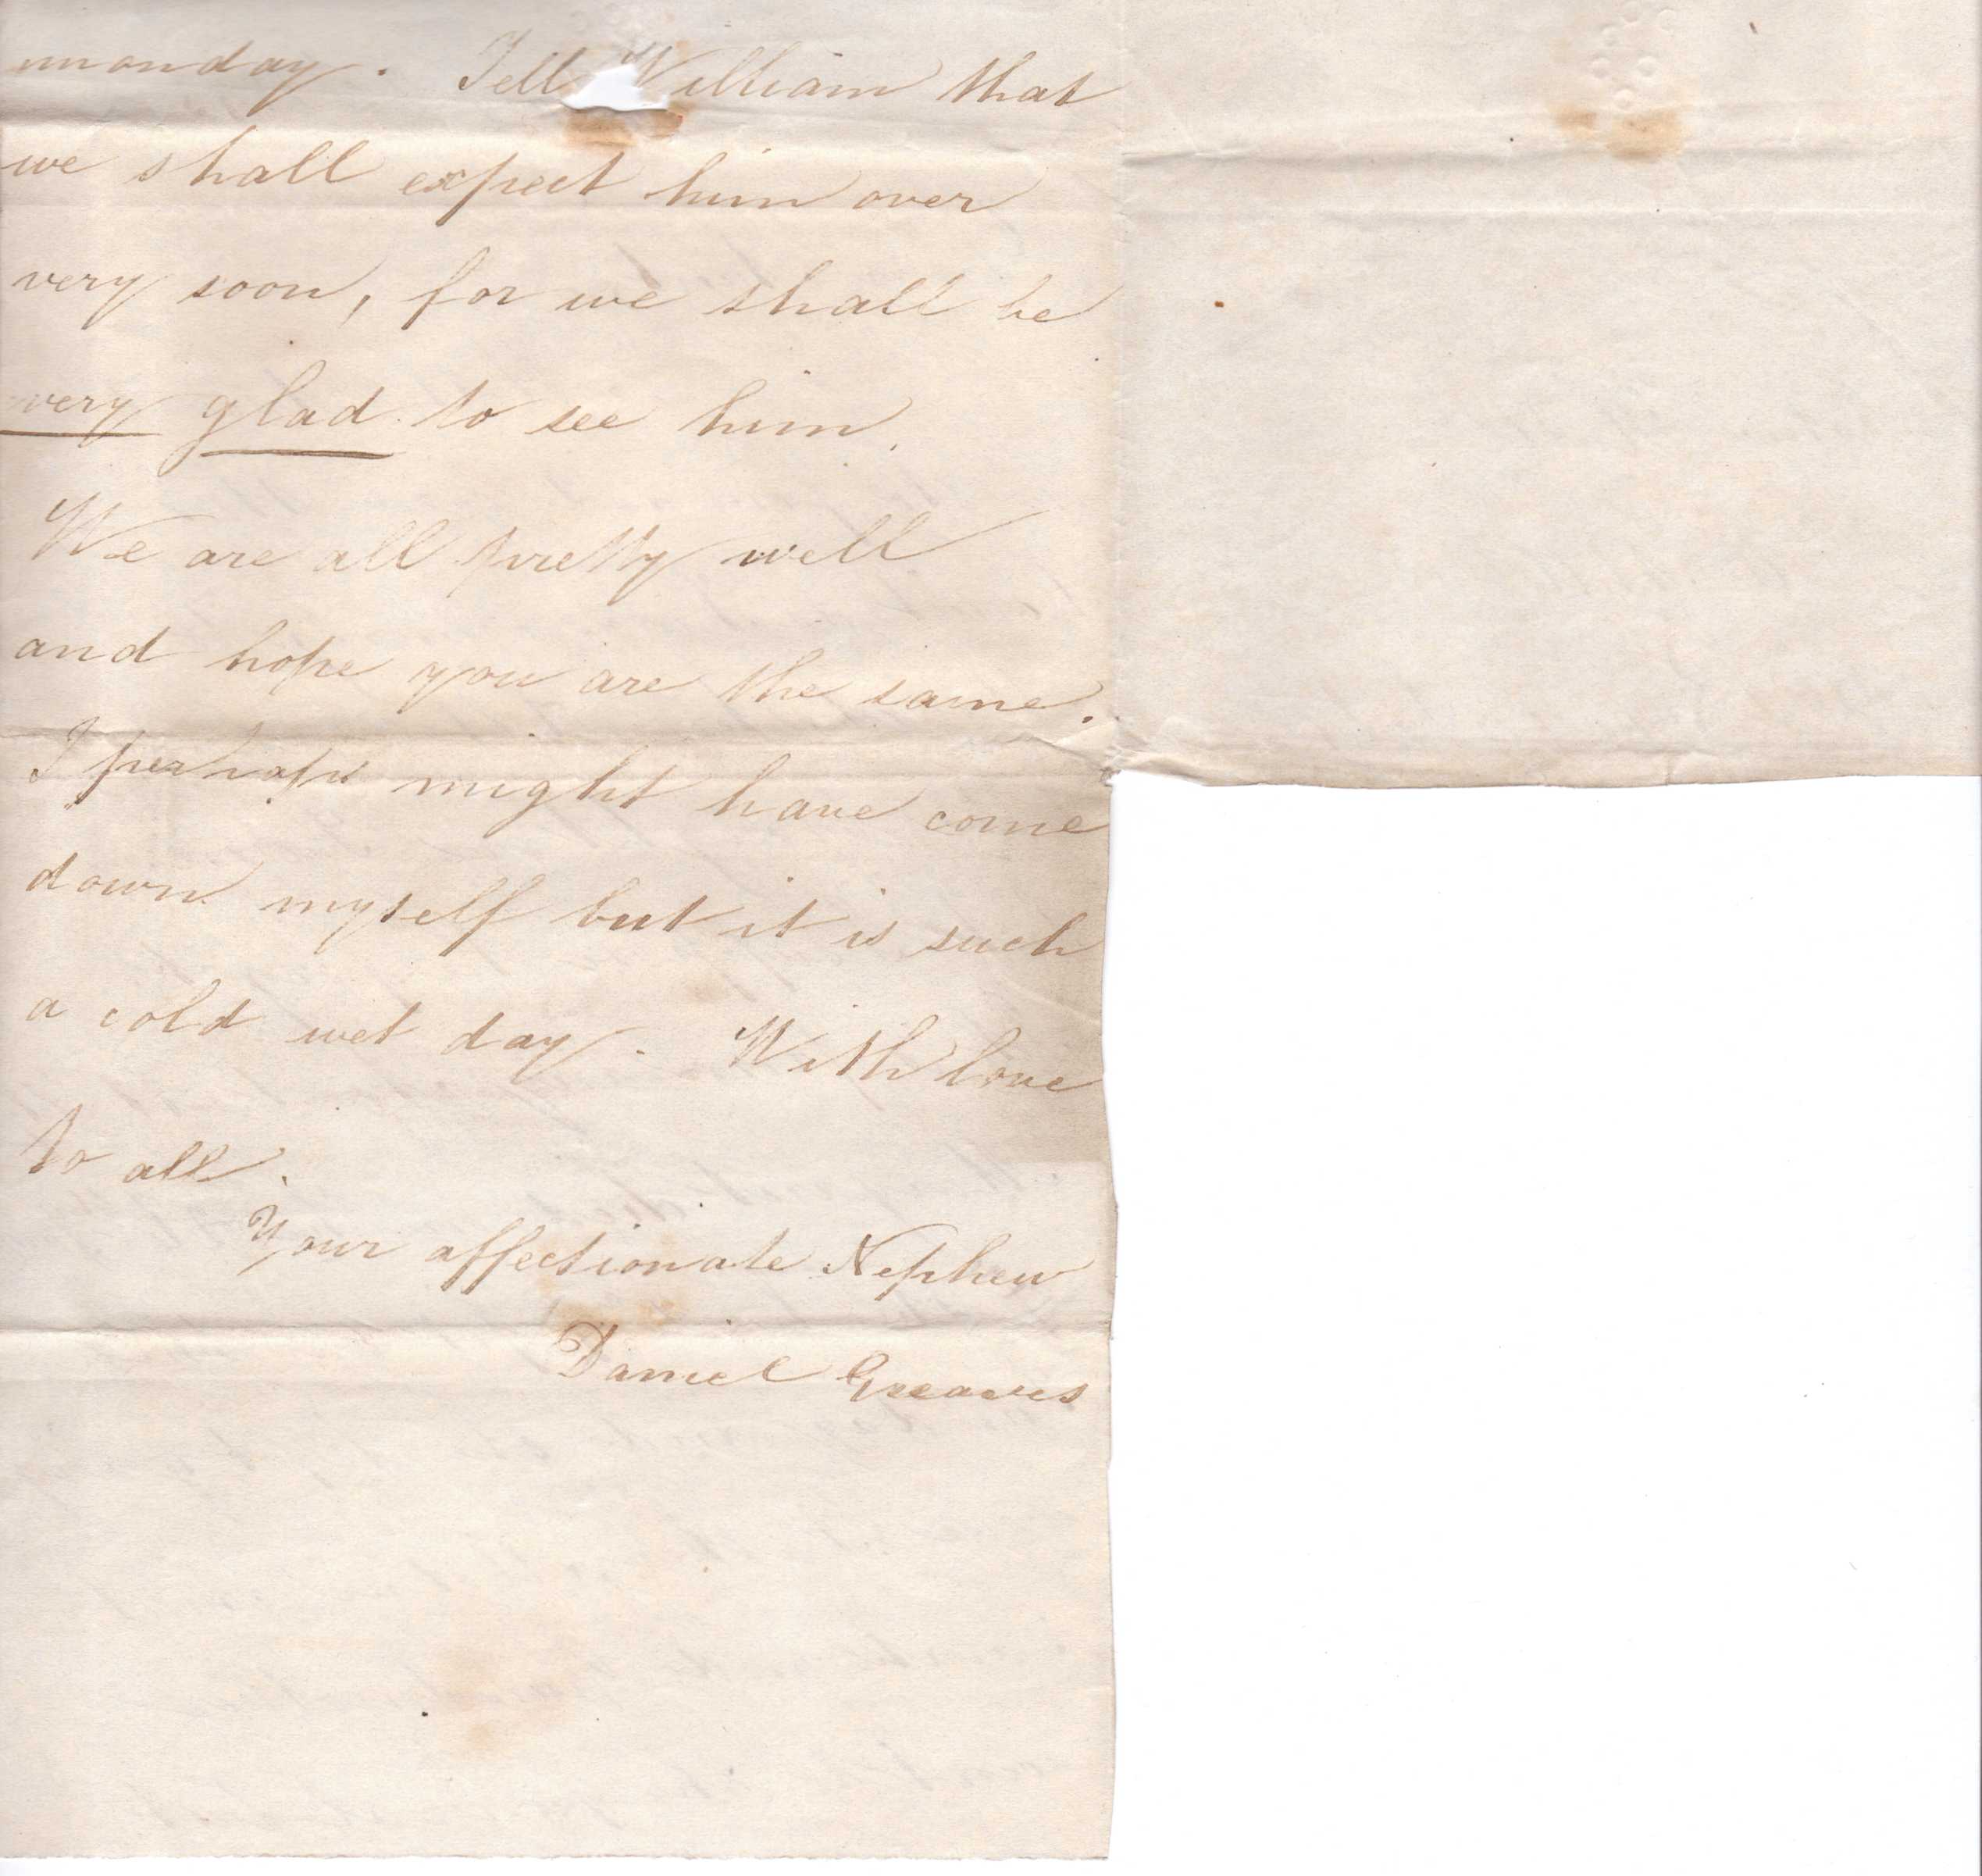 monday. Tell William that
we shall expect him over
very soon, for we shall be
very glad to see him.
We are all pretty well
and hope you are the same.
I perhaps might have come
down myself but it is such
a cold wet day. With love
to all.
Your affectionate Nephew
Daniel Greaves